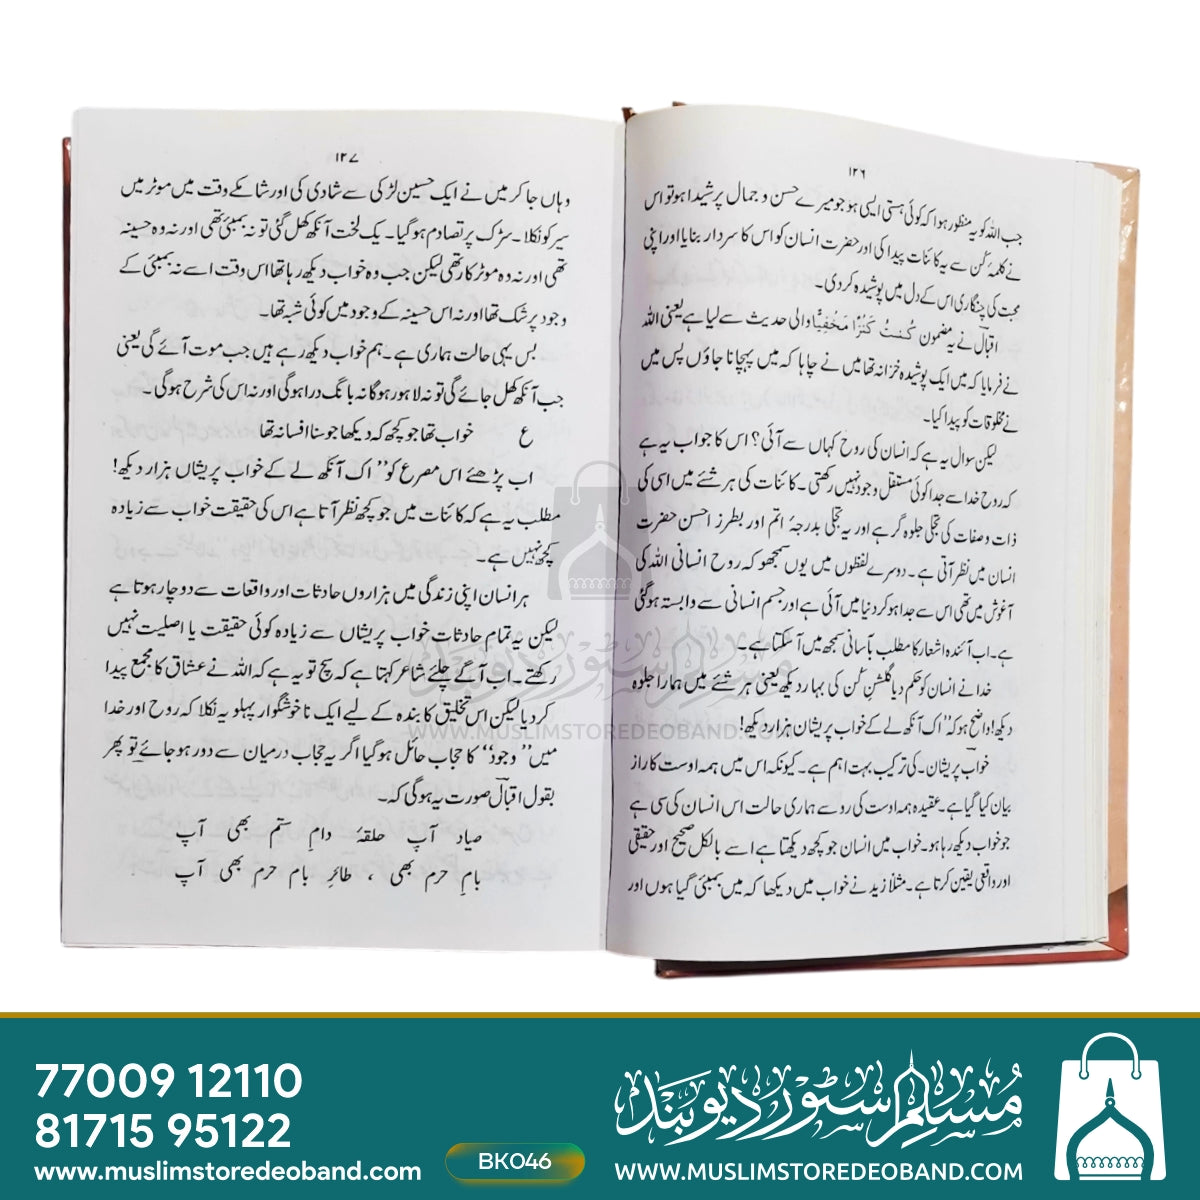 ۱۲۶
جب اللہ کو یہ منظور ہوا کہ کوئی ہستی ایسی ہو جو میرے حسن و جمال پر شیدا ہو تو اس
نے کلمۂ کُن سے یہ کائنات پیدا کی اور حضرت انسان کو اس کا سردار بنایا اور اپنی
محبت کی چنگاری اس کے دل میں پوشیدہ کر دی۔
اقبالؔ نے یہ مضمون کُنْتُ کَنْزًا مَخْفِیًّا والی حدیث سے لیا ہے یعنی اللہ
نے فرمایا کہ میں ایک پوشیدہ خزانہ تھا میں نے چاہا کہ میں پہچانا جاؤں پس میں
نے مخلوقات کو پیدا کیا۔
لیکن سوال یہ ہے کہ انسان کی روح کہاں سے آئی؟ اس کا جواب یہ ہے
کہ روح خدا سے جدا کوئی مستقل وجود نہیں رکھتی۔ کائنات کی ہر شئے میں اسی کی
ذات و صفات کی تجلی جلوہ گر ہے اور یہ تجلی بدرجۂ اتم اور بطرز احسن حضرت
انسان میں نظر آتی ہے۔ دوسرے لفظوں میں یوں سمجھو کہ روح انسانی اللہ کی
آغوش میں تھی اس سے جدا ہو کر دنیا میں آئی ہے اور جسم انسانی سے وابستہ ہو گئی
ہے۔ اب آئندہ اشعار کا مطلب بآسانی سمجھ میں آ سکتا ہے۔
خدا نے انسان کو حکم دیا گلشنِ کُن کی بہار دیکھ یعنی ہر شئے میں ہمارا جلوہ
دیکھ! واضح ہو کہ ”اک آنکھ لے کے خواب پریشاں ہزار دیکھ!
خواب پریشان۔ کی ترکیب بہت اہم ہے۔ کیونکہ اس میں ہمہ اوست کا راز
بیان کیا گیا ہے۔ عقیدہ ہمہ اوست کی رو سے ہماری حالت اس انسان کی سی ہے
جو خواب دیکھ رہا ہو۔ خواب میں انسان جو کچھ دیکھتا ہے اسے بالکل صحیح اور حقیقی
اور واقعی یقین کرتا ہے۔ مثلاً زید نے خواب میں دیکھا کہ میں بمبئی گیا ہوں اور
۱۲۷
وہاں جا کر میں نے ایک حسین لڑکی سے شادی کی اور شام کے وقت میں موٹر میں
سیر کو نکلا۔ سڑک پر تصادم ہو گیا۔ یک لخت آنکھ کھل گئی تو نہ بمبئی تھی اور نہ وہ حسینہ
تھی اور نہ وہ موٹر کار تھی لیکن جب وہ خواب دیکھ رہا تھا اس وقت اسے نہ بمبئی کے
وجود پر شک تھا اور نہ اس حسینہ کے وجود میں کوئی شبہ تھا۔
بس یہی حالت ہماری ہے۔ ہم خواب دیکھ رہے ہیں جب موت آئے گی یعنی
جب آنکھ کھل جائے گی تو نہ لاہور ہوگا نہ بانگ درا ہوگی اور نہ اس کی شرح ہوگی۔
ع خواب تھا جو کچھ کہ دیکھا جو سنا افسانہ تھا
اب پڑھئے اس مصرع کو ”اک آنکھ لے کے خواب پریشاں ہزار دیکھ!
مطلب یہ ہے کہ کائنات میں جو کچھ نظر آتا ہے اس کی حقیقت خواب سے زیادہ
کچھ نہیں ہے۔
ہر انسان اپنی زندگی میں ہزاروں حادثات اور واقعات سے دوچار ہوتا ہے
لیکن یہ تمام حادثات خواب پریشاں سے زیادہ کوئی حقیقت یا اصلیت نہیں
رکھتے۔ اب آگے چلئے شاعر کہتا ہے کہ سچ تو یہ ہے کہ اللہ نے عشاق کا مجمع پیدا
کر دیا لیکن اس تخلیق کا بندہ کے لیے ایک ناخوشگوار پہلو یہ نکلا کہ روح اور خدا
میں ”وجود“ کا حجاب حائل ہو گیا اگر یہ حجاب درمیان سے دور ہو جائے تو پھر
بقول اقبالؔ صورت یہ ہوگی کہ۔
صیاد آپ حلقۂ دامِ ستم بھی آپ
بامِ حرم بھی ، طائرِ بام حرم بھی آپ
مسلم سٹور دیوبند
WWW.MUSLIMSTOREDEOBAND.COM
77009 12110
81715 95122
www.muslimstoredeoband.com
BK046
مسلم سٹور دیوبند
WWW.MUSLIMSTOREDEOBAND.COM